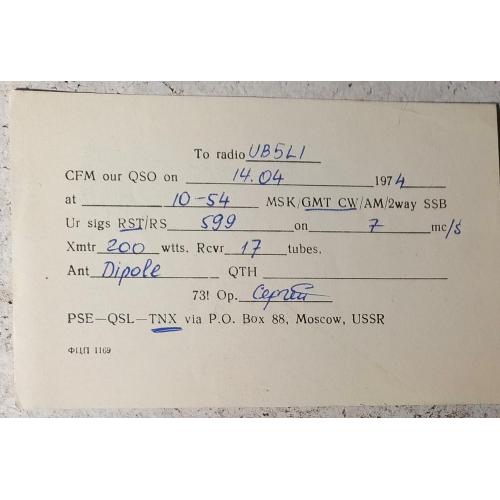 To radio UB5LI
CFM our QSO on 14.04 1974
at 10-54 MSK/GMT CW/AM/2way SSB
Ur sigs RST/RS 599 on 7 mc/s
Xmtr 200 wtts. Rcvr 17 tubes.
Ant Dipole QTH
73! Op. Сергей
PSE—QSL—TNX via P.O. Box 88, Moscow, USSR
ФЦП 1169